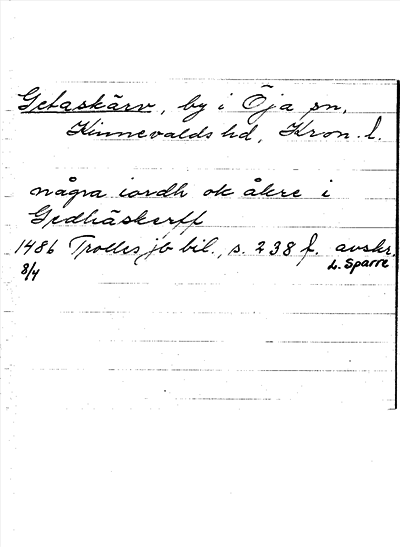 Getaskärv, by i Öja sn,
Kinnevalds hd, Kron. l.
några iordh ok åkre i
Gedhäskerff
1486 Trolles jb bil., s. 238 f. avskr.
8/4 L. Sparre